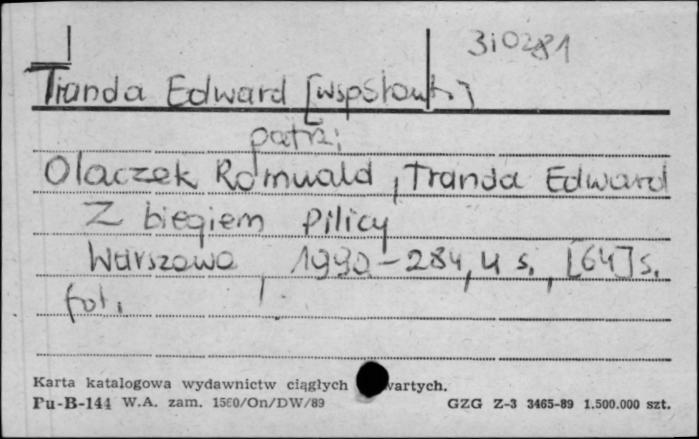 310281
Tranda Edward [współaut.]
patrz:
Olaczek Romuald, Tranda Edward
Z biegiem Pilicy
Warszawa, 1990 - 284, 4 s., [64] s.
fot.
Karta katalogowa wydawnictw ciągłych wartych.
Pu-B-144 W.A. zam. 1560/On/DW/89 GZG Z-3 3465-89 1.500.000 szt.